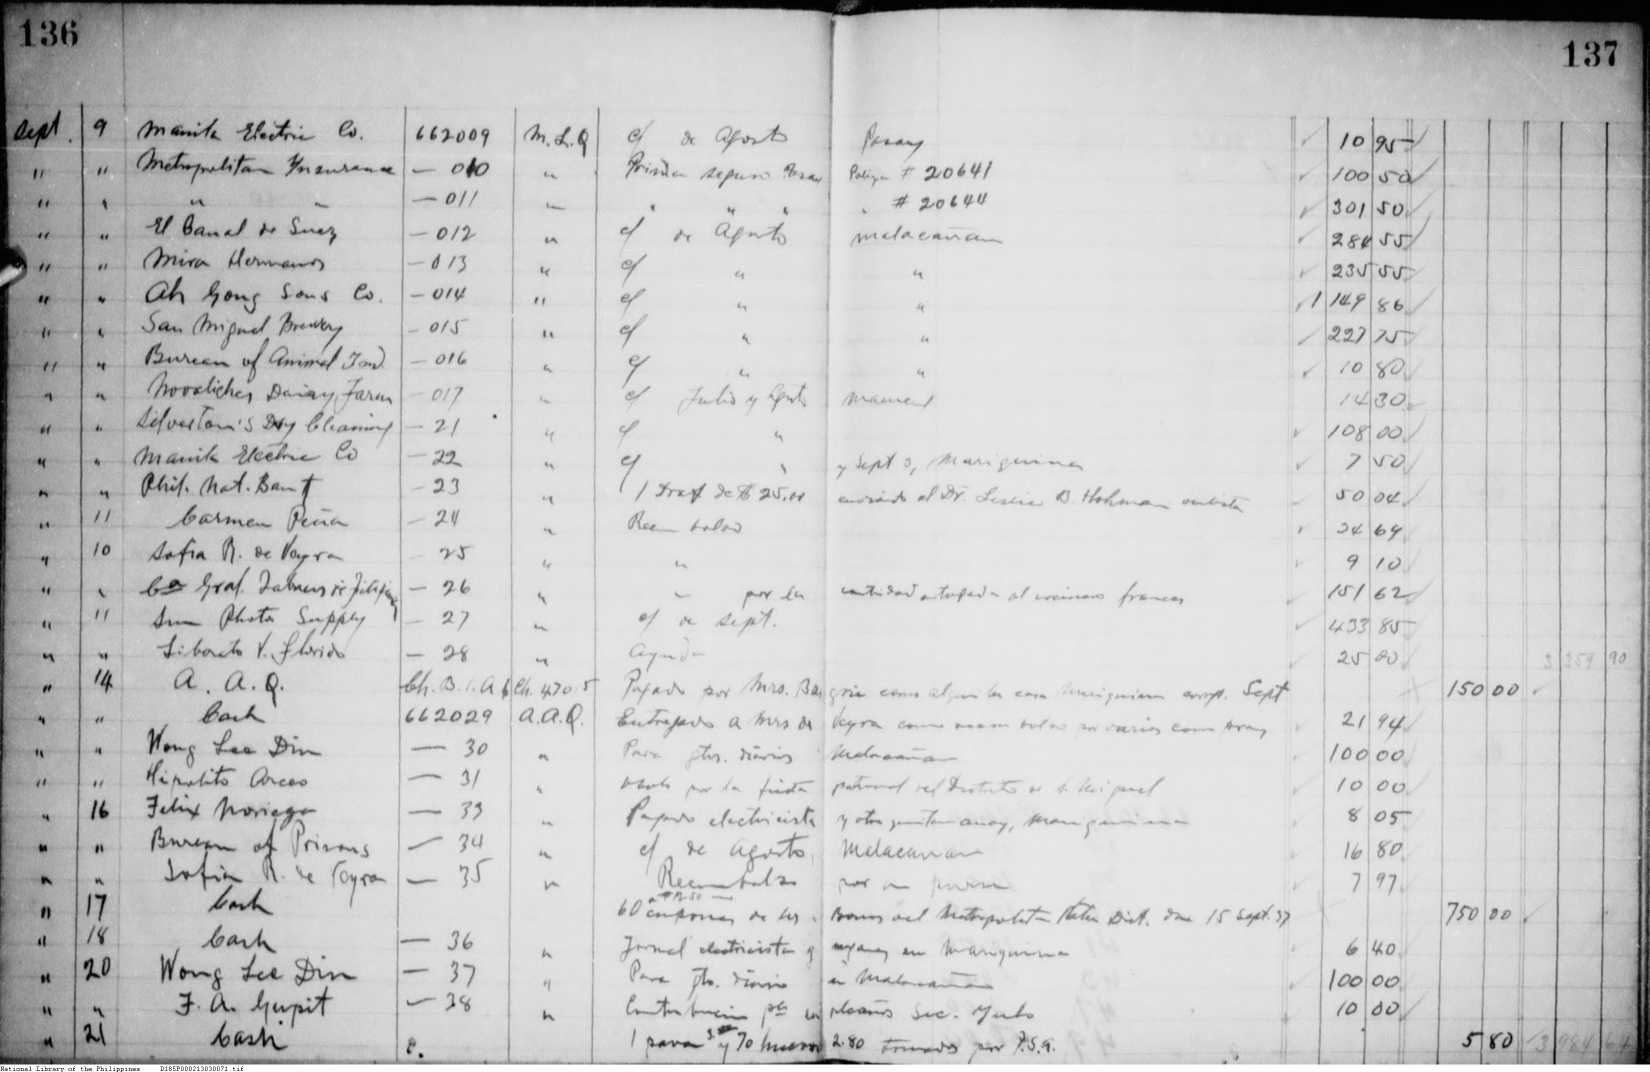 136
137
Sept. 9 Manila Electric Co. 662009 M.L.Q c/ de Agosto Pasay 10 95
" " Metropolitan Insurance — 010 " seguro Pasay Poliza # 20641 100 50
" " " " — 011 " " " " " # 20644 301 50
" " El Canal de Suez — 012 " c/ de Agosto Malacañan 284 55
" " Mira Hermanos — 013 " c/ " " 235 55
" " Ah Gong Sons Co. — 014 " c/ " " 1 149 86
" " San Miguel Brewery — 015 " c/ " " 227 75
" " Bureau of Animal Ind — 016 " c/ " " 10 80
" " Novaliches Dairy Farm — 017 " c/ Julio y Agosto 14 30
" " Silverton's Dry Cleaning — 21 " c/ " 108 00
" " Manila Electric Co — 22 " c/ " y Sept 3, Mariquina 7 50
" " Phil. Nat. Bank — 23 " 1 Draft de $ 25.00 enviado al Dr. Leslie B. Hohman 50 04
" 11 Carmen Peña — 24 " Reembolso 24 69
" 10 Sofia R. de Veyra — 25 " " 9 10
" " Ca Gral. Tabacos de Filipinas — 26 " " por la cantidad entregada al cocinero frances 151 62
" 11 Sun Photo Supply — 27 " c/ de Sept. 433 85
" " Liborato V. Florido — 28 " Ayuda 25 00 3 259 90
" 14 A. A. Q. Ch. B.I.A Ch. 4705 Pagado por Mrs. como alquiler casa Mariquina Sept 150 00
" " Cash 662029 A.A.Q. Entregado a Mrs de Veyra como reembolso por varias compras 21 94
" " Wong See Din — 30 " Para gtos. diarios Malacañan 100 00
" " Hipolito Arceo — 31 " por la fiesta patronal del Distrito de S. Miguel 10 00
" 16 Felix Noriega — 33 " Pagado electricista y otros Mariquina 8 05
" " Bureau of Prisons — 34 " c/ de Agosto, Malacañan 16 80
" " Sofia R. de Veyra — 35 " Reembolso por 7 97
" 17 Cash 60 cupones de los Bonos del Metropolitan Water Dist. due 15 Sept. 37 750 00
" 18 Cash — 36 " Jornal electricista y en Mariquina 6 40
" 20 Wong See Din — 37 " Para gto. diario en Malacañan 100 00
" " F. A. Gupit — 38 " Contribucion 10 00
" 21 Cash 1 pavo y 70 huevos 2.80 tomados por P.S.Q. 5 80 3 984 64
National Library of the Philippines D185P000213030071.tif